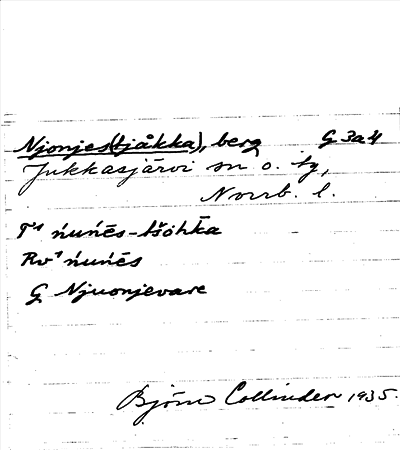 Njonjes(tjåkka), berg G 3a4
Jukkasjärvi sn o. tg,
Norrb. l.
T¹ ńuńēs-tšohkka
Rv¹ ńuńēs
G Njuonjevare
Björn Collinder 1935.